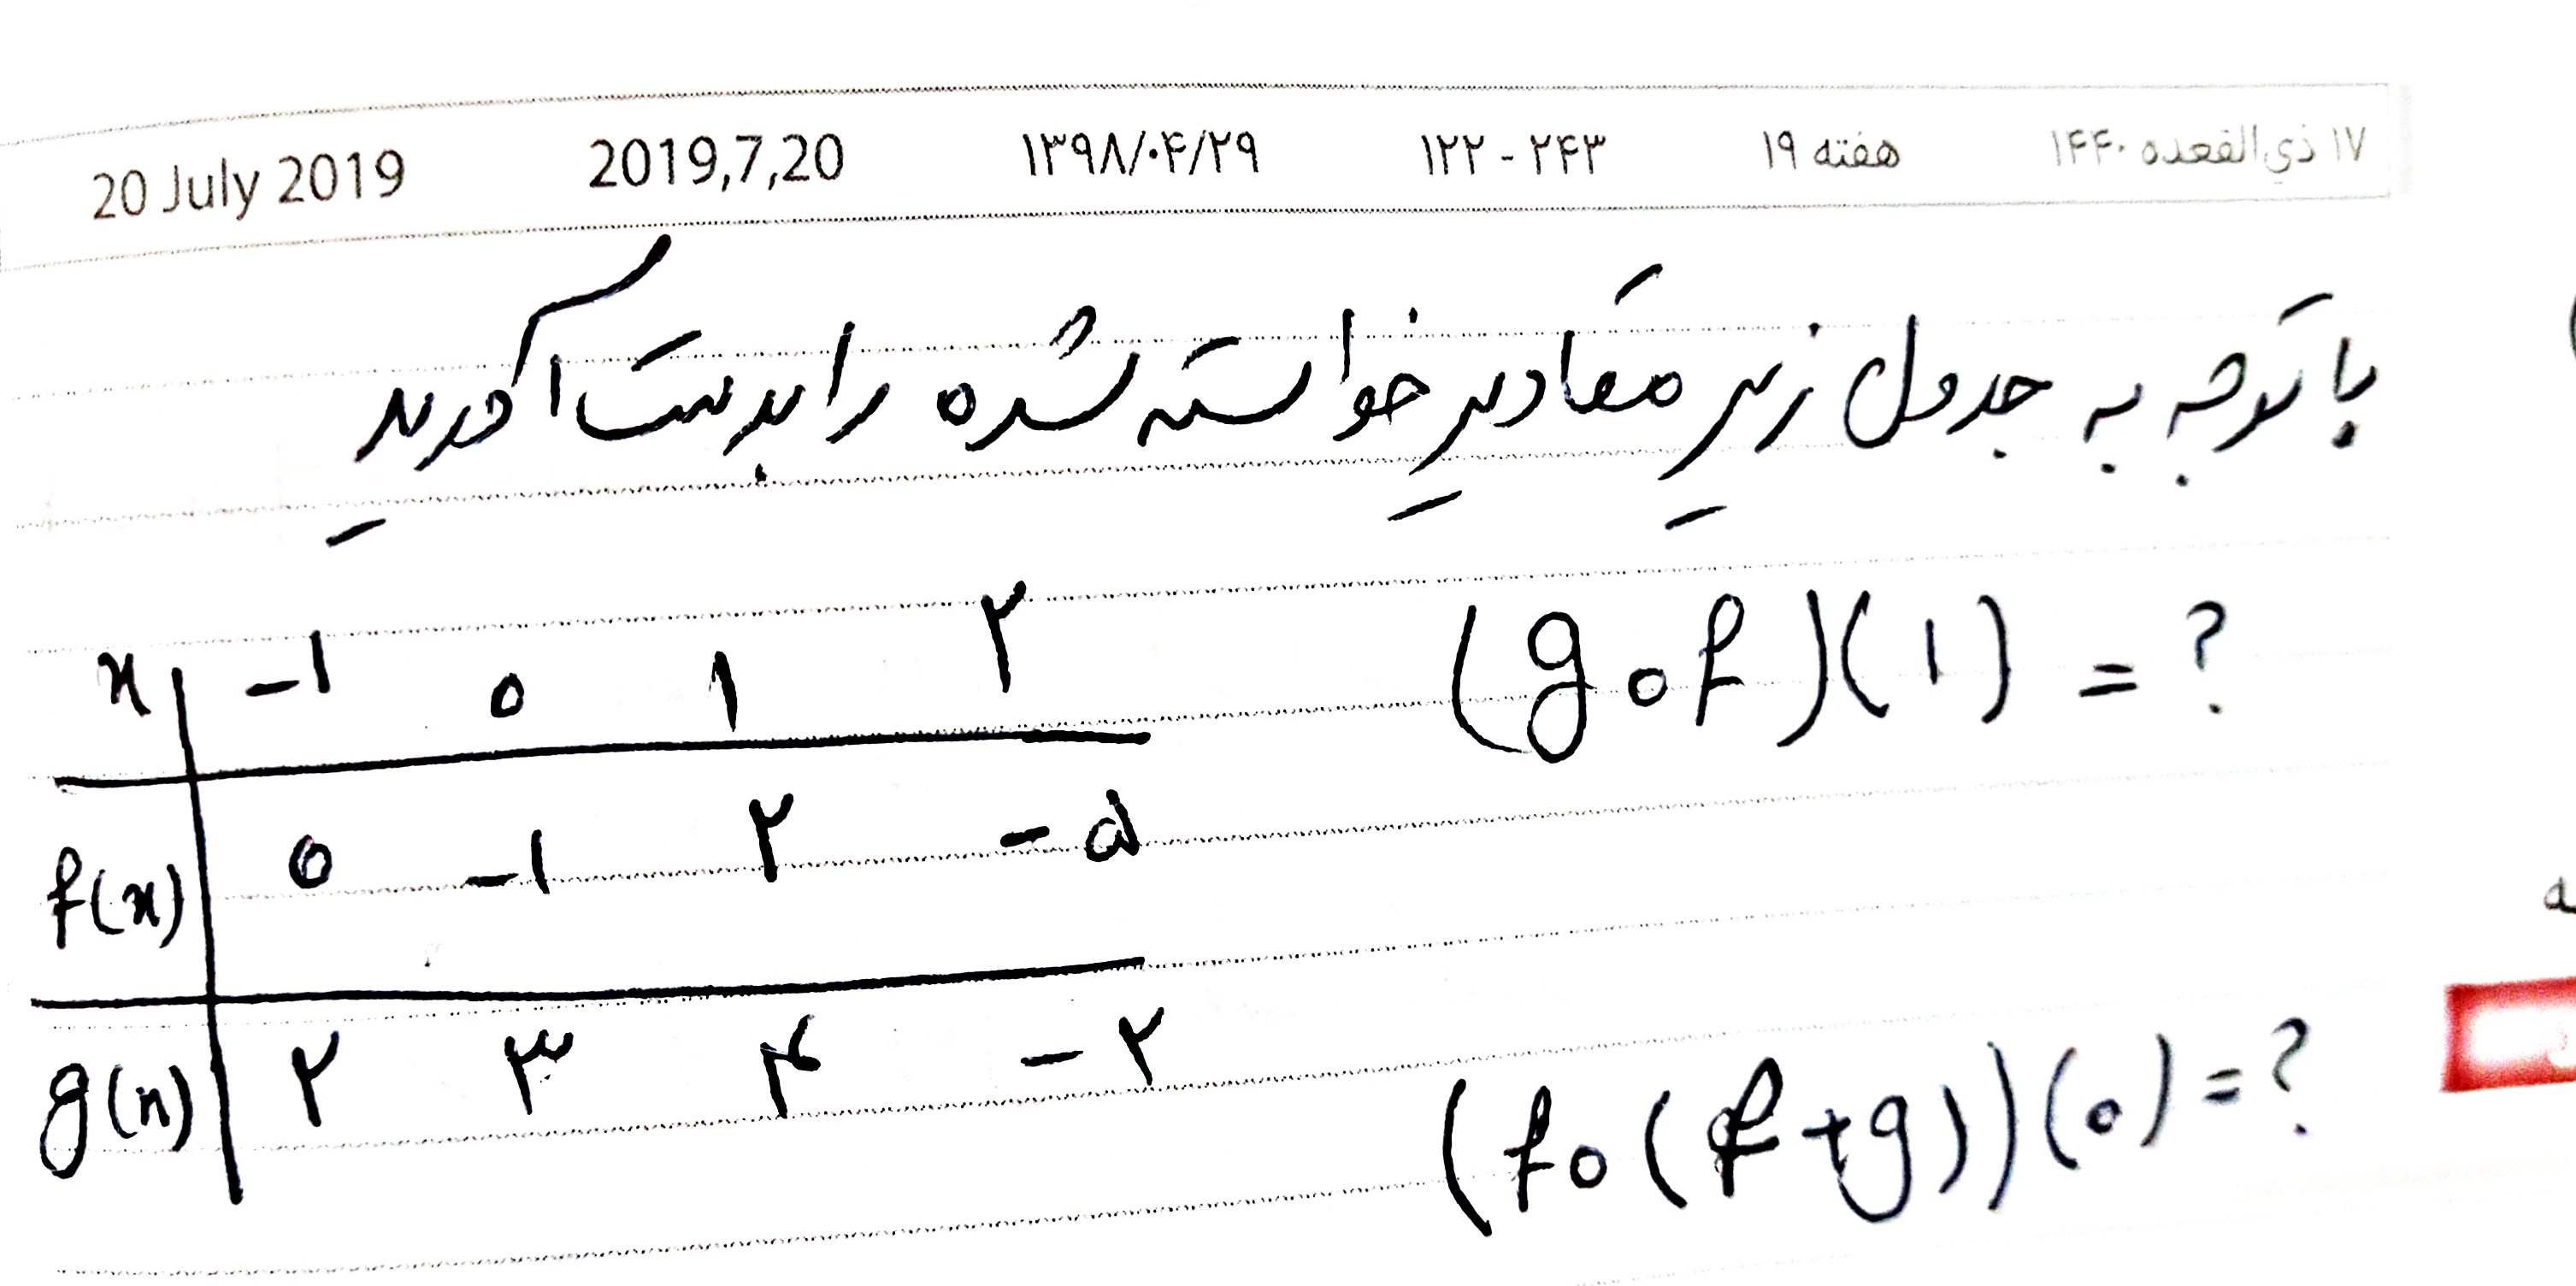 20 July 2019 2019,7,20 ۱۳۹۸/۰۴/۲۹ ۱۲۲ - ۲۴۳ هفته ۱۹ ۱۷ ذي القعده ۱۴۴۰
با توجه به جدول زیر مقادیر خواسته شده را بدست آورید
x | -۱ ۰ ۱ ۲
(gof)(۱) = ?
f(x) | ۰ -۱ ۲ -۵
g(x) | ۲ ۳ ۴ -۲
(fo(f+g))(۰) = ?